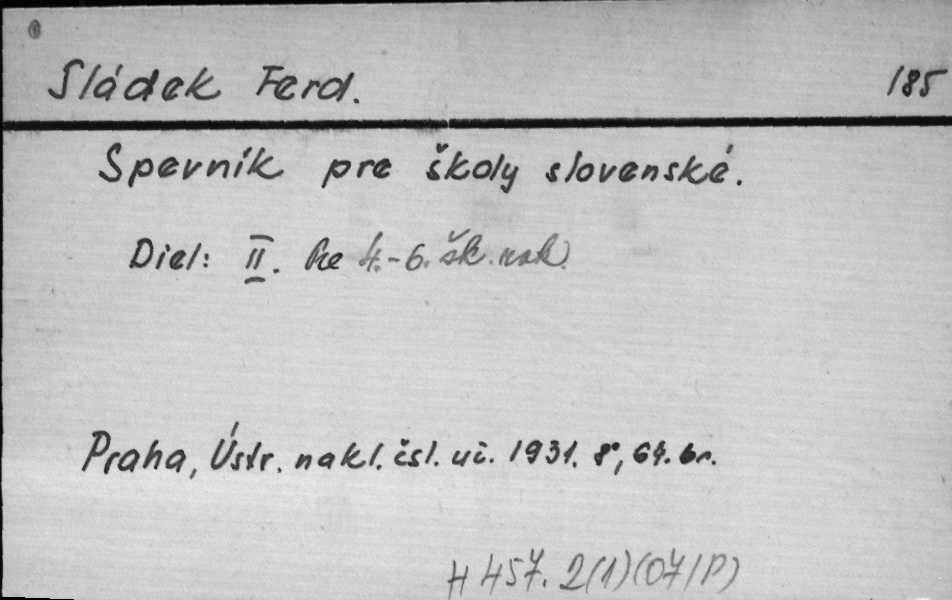 Sládek Ferd. 185
Spevník pre školy slovenské.
Diel: II. Pre 4.-6. šk. rok.
Praha, Ústr. nakl. čsl. uč. 1931. 8°, 64. br.
H 457. 2(1)(07/P)